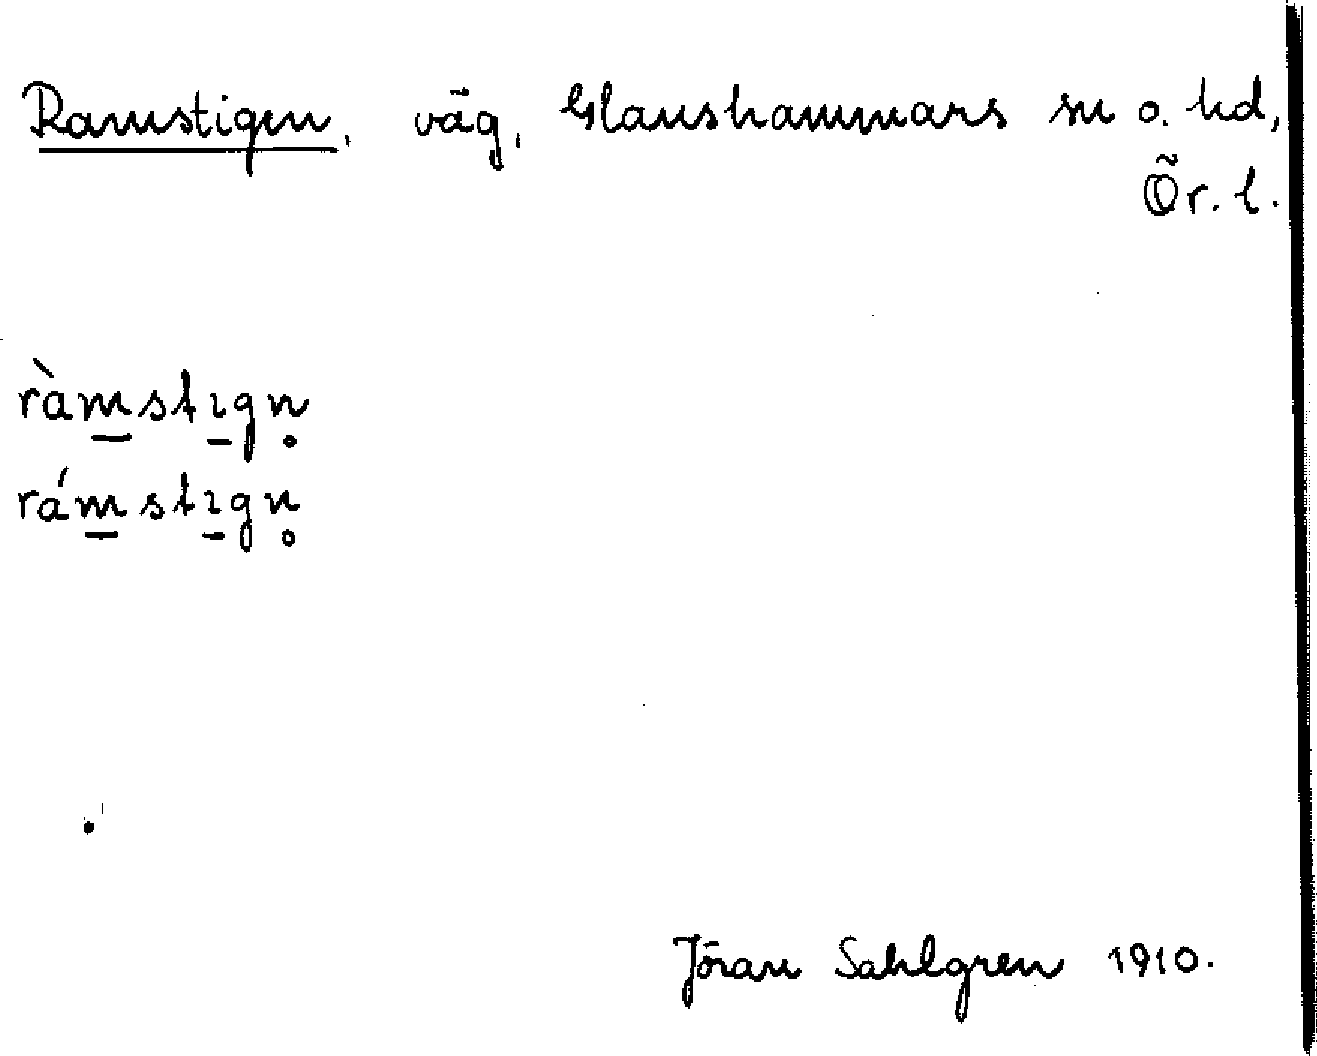 Ramstigen, väg, Glanshammars sn o. hd,
Ör. l.
ràm̱stı̱gn̥
rám̱stı̱gn̥
Jöran Sahlgren 1910.